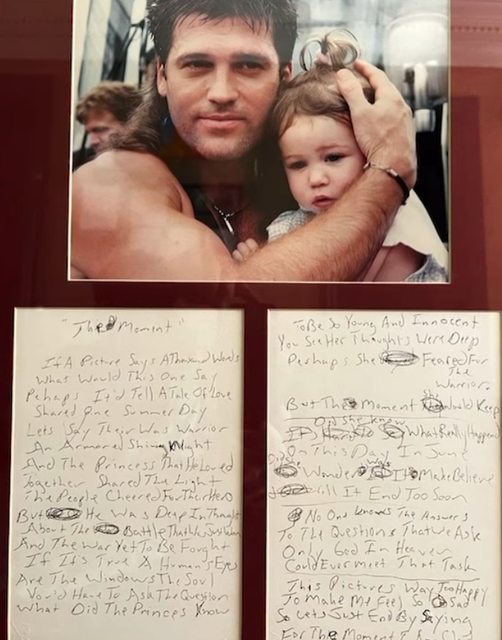 "The Moment"
If A Picture Says A Thousand Words
What Would This One Say
Pehaps It'd Tell A Tale Of Love
Shared One Summer Day
Lets Say Their Was Warrior
An Armored Shining Knight
And The Princess That He Loved
Together Shared The Light
The People Cheered For Their Hero
But He Was Deep In Thought
About The Battle That He Just
And The War Yet To Be Fought
If It's True A Human's Eyes
Are The Windows The Soul
You'd Have To Ask The Question
What Did The Princes Know
To Be So Young And Innocent
You See Her Thoughts Were Deep
Perhaps She Feared For
The
Warrior.
But The Moment Would Keep
Did She Know
What Really Happened
On This Day In June
Wonder Is It Make Believe
Will It End Too Soon
No One Knows The Answers
To The Questions That We Ask
Only God In Heaven
Could Ever Meet That Task
This Pictures Way Too Happy
To Make Me Feel So Sad
So Lets Just End By Saying
For The Moment